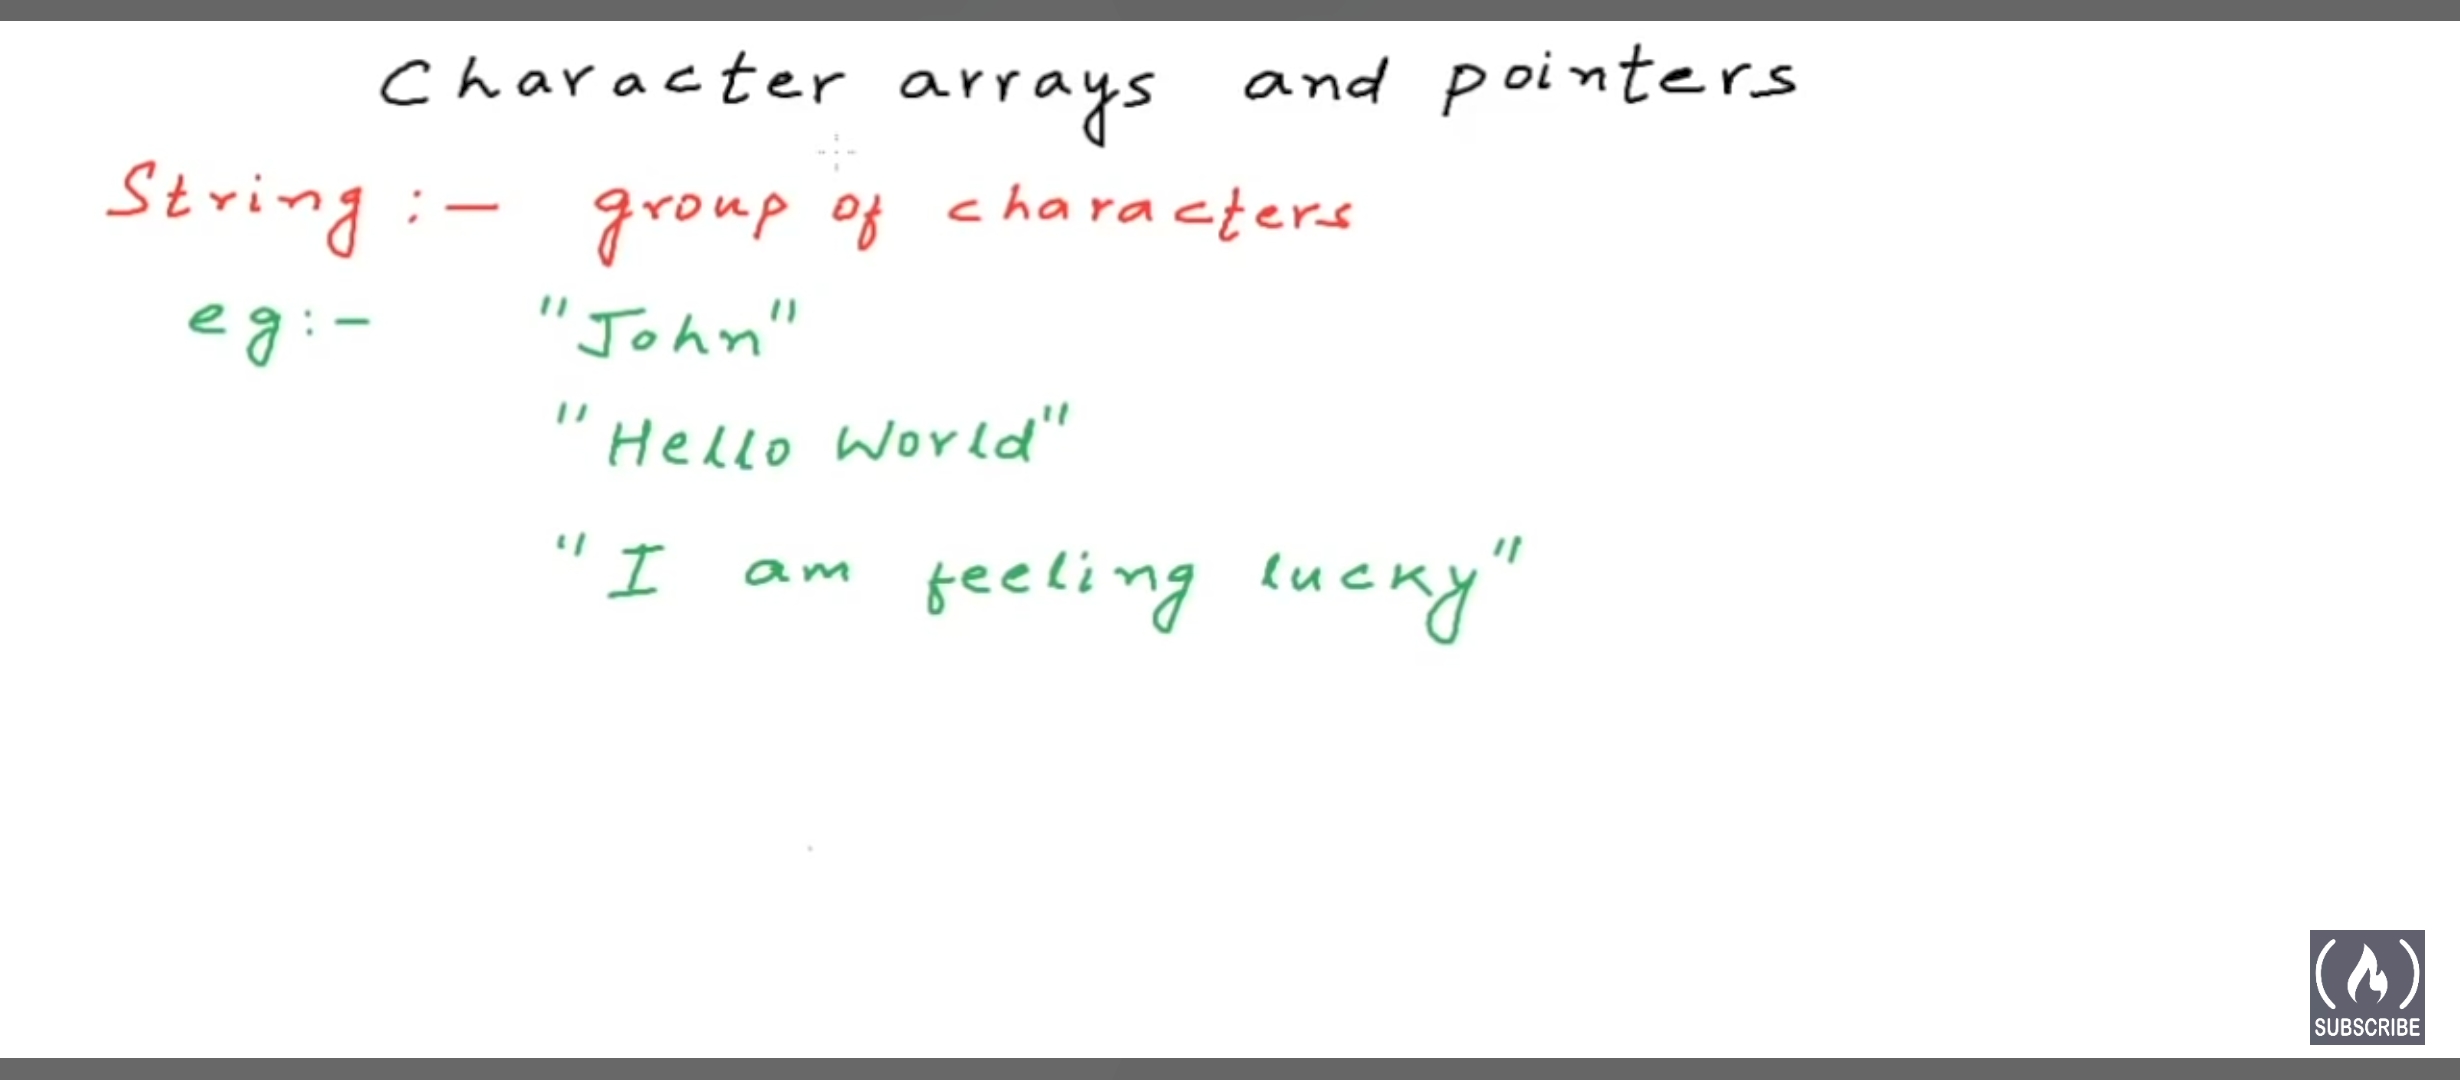 Character arrays and pointers
String :- group of characters
eg:- "John"
"Hello World"
"I am feeling lucky"
SUBSCRIBE